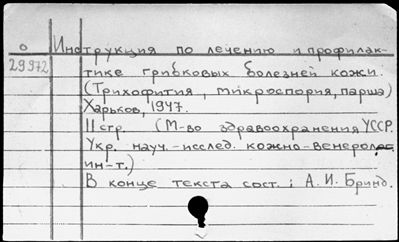 О Инструкция по лечению и профилак-
29972 тике грибковых болезней кожи.
(Трихофития, микроспория, парша)
Харьков, 1947.
11 стр. (М-во здравоохранения УССР.
Укр. науч.-исслед. кожно-венеролог.
ин-т.)
В конце текста сост.: А. И. Бринд.